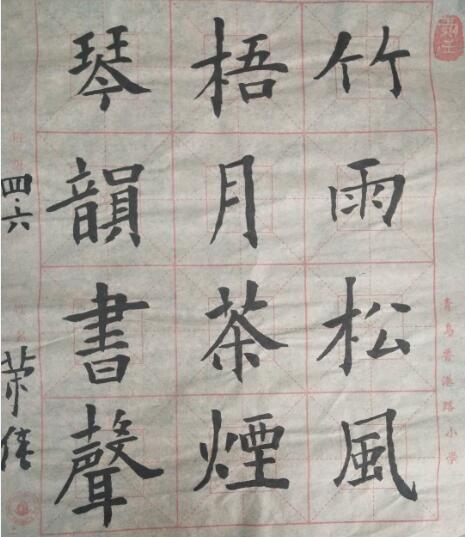 竹雨松風
梧月茶煙
琴韻書聲
四.六
青島香港路小学